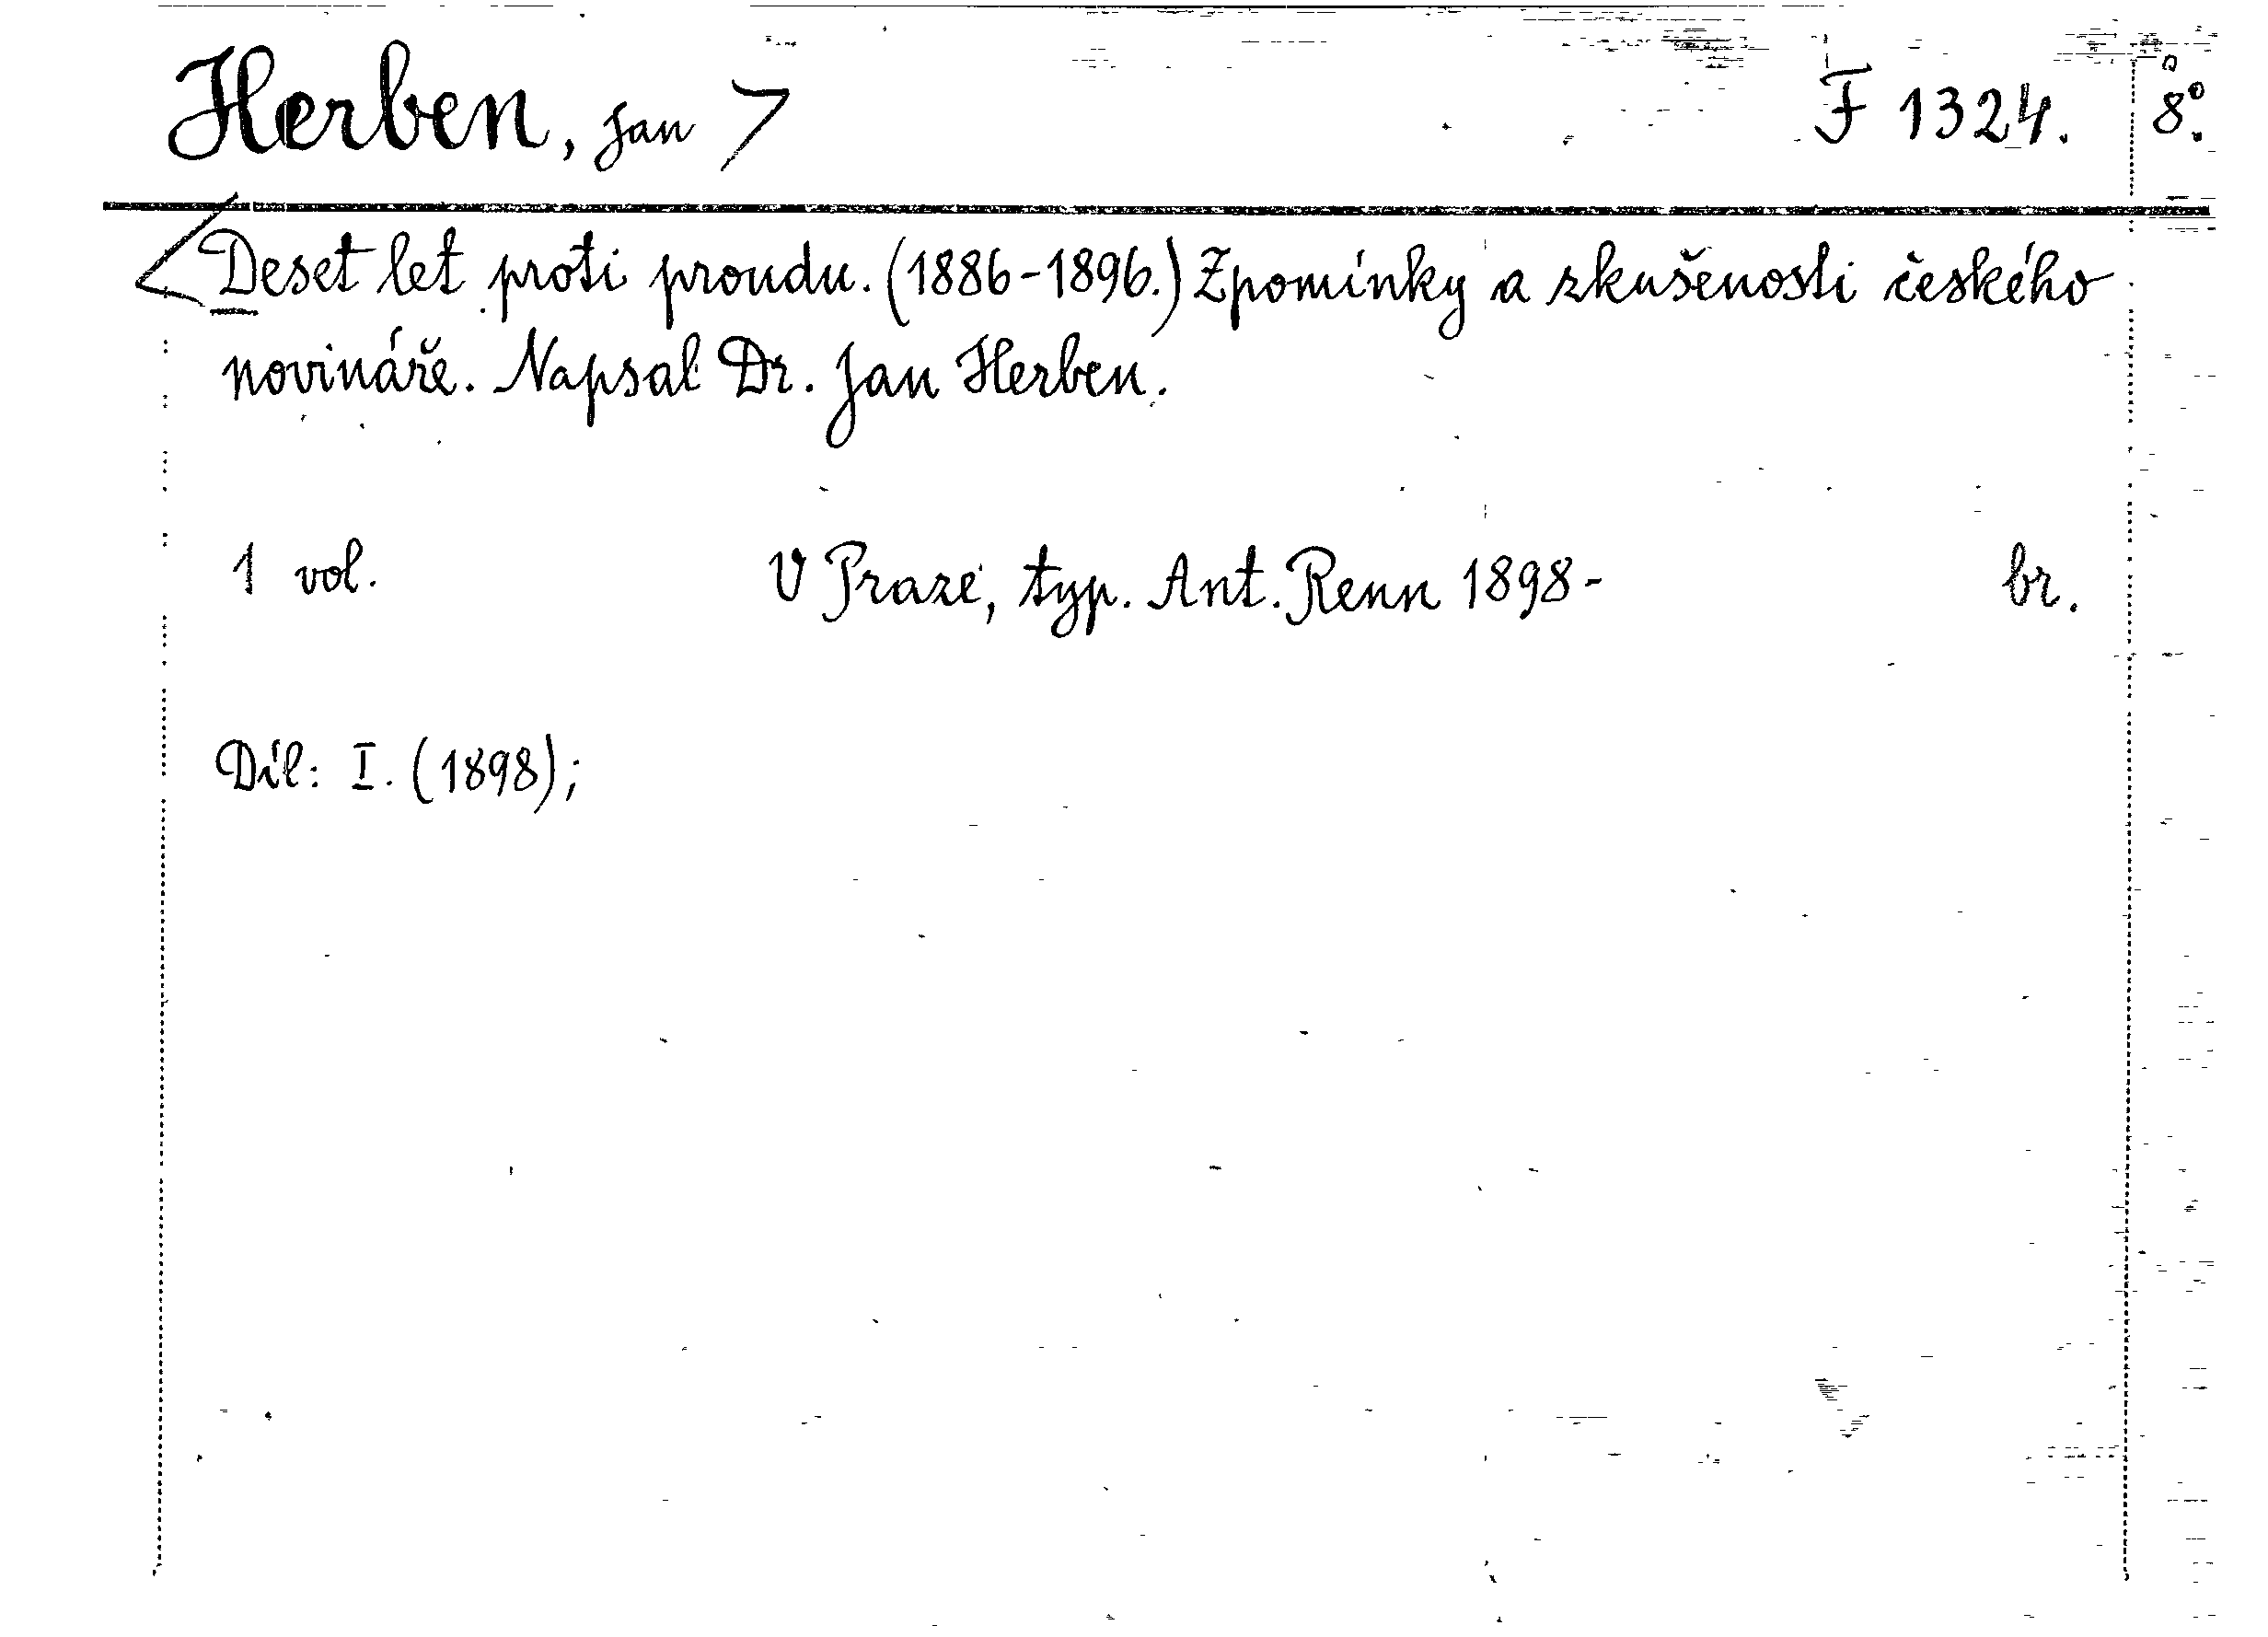 Herben, Jan > F 1324. 8°.
<Deset let proti proudu. (1886-1896.) Zpomínky a zkušenosti českého
novináře. Napsal Dr. Jan Herben.
1 vol. V Praze, typ. Ant. Renn 1898- br.
Díl: I. (1898);